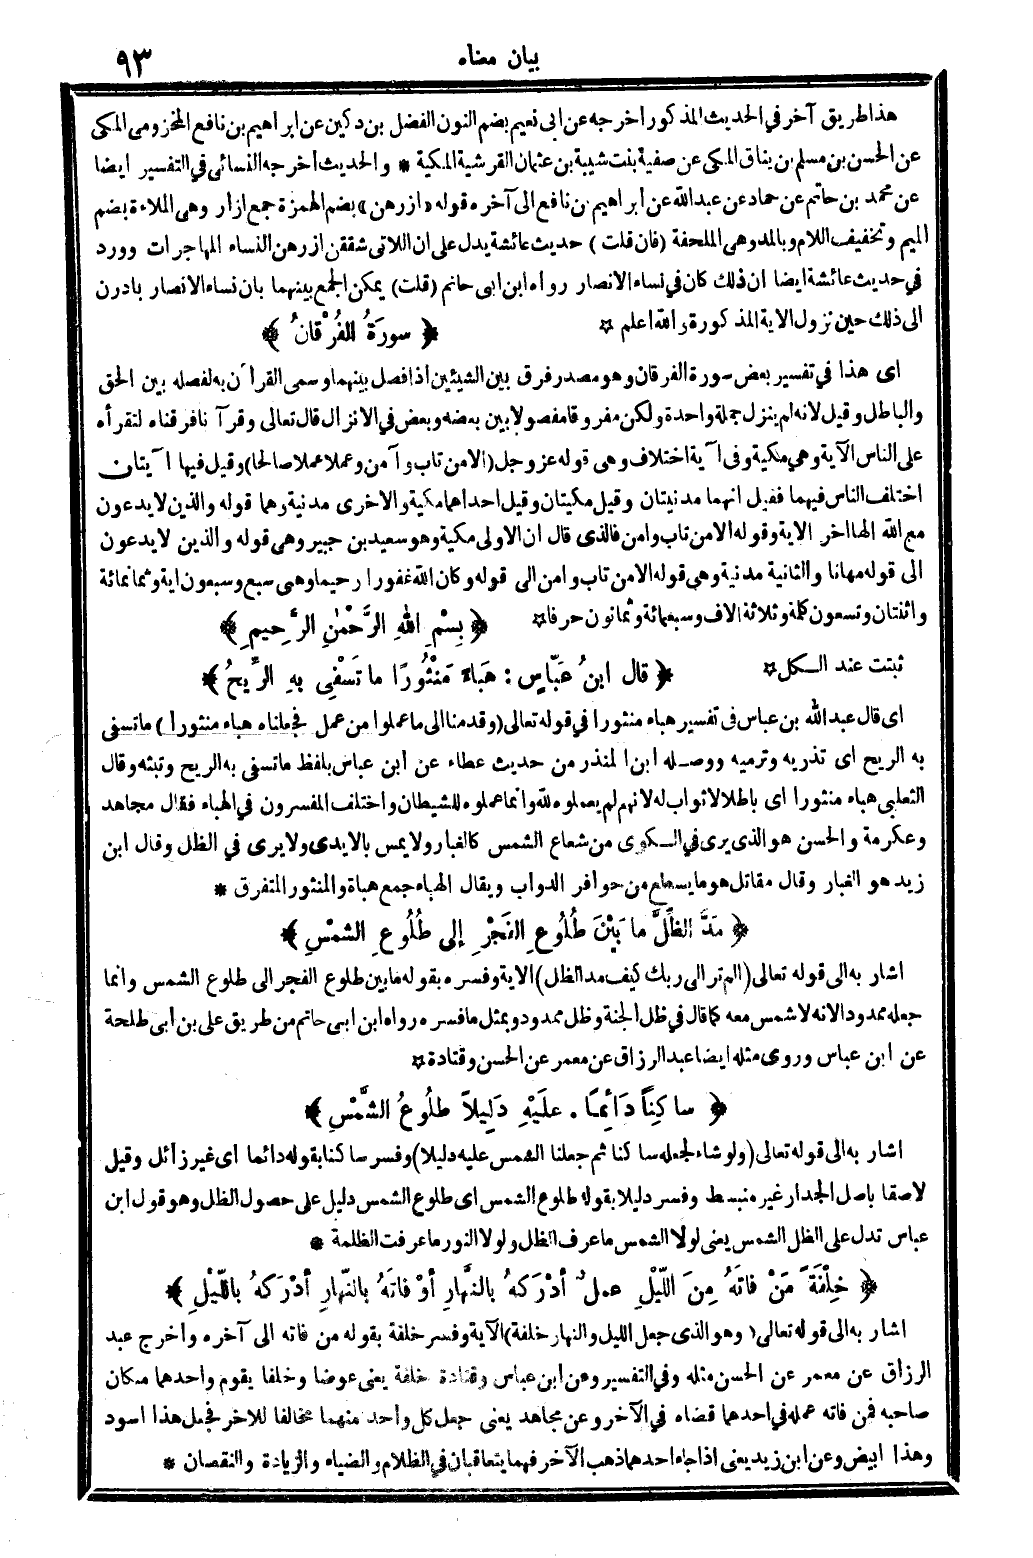 بيان معناه ٩٣
هذا طريق آخر في الحديث المذكور اخرجه عن ابى نعيم بضم النون الفضل بن دكين عن ابراهيم بن نافع المخزومى المكى
عن الحسن بن مسلم بن يناق المكى عن صفية بنت شيبة بن عثمان القرشية المكية * والحديث اخرجه النسائى في التفسير ايضا
عن محمد بن حاتم عن حماد عن عبدالله عن ابراهيم بن نافع الى آخره قوله «ازرهن» بضم الهمزة جمع ازار وهى الملاءة بضم
الميم وتخفيف اللام وبالمد وهى الملحفة (فان قلت) حديث عائشة يدل على ان اللاتى شققن ازرهن النساء المهاجرات وورد
في حديث عائشة ايضا ان ذلك كان في نساء الانصار رواه ابن ابى حاتم (قلت) يمكن الجمع بينهما بان نساء الانصار بادرن
الى ذلك حين نزول الاية المذكورة والله اعلم ☆ ﴿ سورَةُ الفُرْقانُ ﴾
اى هذا في تفسير بعض سورة الفرقان وهو مصدر فرق بين الشيئين اذا فصل بينهما وسمى القرآن به لفصله بين الحق
والباطل وقيل لانه لم ينزل جملة واحدة ولكن مفروقا مفصولا بين بعضه وبعض في الانزال قال تعالى وقرآنا فرقناه لتقرأه
على الناس الآية وهي مكية وفى آية اختلاف وهى قوله عز وجل (الا من تاب وآمن وعمل عملا صالحا) وقيل فيها آيتان
اختلف الناس فيهما فقيل انهما مدنيتان وقيل مكيتان وقيل احداهما مكية والاخرى مدنية وهما قوله والذين لا يدعون
مع الله الها اخر الاية وقوله الا من تاب وامن فالذى قال ان الاولى مكية وهو سعيد بن جبير وهى قوله والذين لا يدعون
الى قوله مهانا والثانية مدنية وهى قوله الا من تاب وامن الى قوله وكان الله غفورا رحيما وهى سبع وسبعون اية وثمانمائة
واثنتان وتسعون كلمة وثلاثة الاف وسبعمائة وثمانون حرفا ☆ ﴿ بِسْمِ اللهِ الرَّحْمٰنِ الرَّحِيمِ ﴾
ثبتت عند الكل ☆ ﴿ قال ابنُ عَبّاسٍ : هَباءً مَنْثُورًا ما تَسْفِى بِهِ الرِّيحُ ﴾
اى قال عبد الله بن عباس فى تفسير هباء منثورا في قوله تعالى (وقدمنا الى ما عملوا من عمل فجعلناه هباء منثورا) ما تسفى
به الريح اى تذريه وترميه ووصله ابن المنذر من حديث عطاء عن ابن عباس بلفظ ما تسفى به الريح وتبثه وقال
الثعلبى هباء منثورا اى باطلا لا ثواب له لانهم لم يعملوه لله وانما عملوه للشيطان واختلف المفسرون في الهباء فقال مجاهد
وعكرمة والحسن هو الذى يرى في الكوى من شعاع الشمس كالغبار ولا يمس بالايدى ولا يرى في الظل وقال ابن
زيد هو الغبار وقال مقاتل هو ما يسطع من حوافر الدواب ويقال الهباء جمع هباة والمنثور المتفرق *
﴿ مَدَّ الظِّلَّ ما بَيْنَ طُلُوعِ الفَجْرِ إلى طُلُوعِ الشمْسِ ﴾
اشار به الى قوله تعالى (الم تر الى ربك كيف مد الظل) الاية وفسره بقوله ما بين طلوع الفجر الى طلوع الشمس وانما
جعله ممدودا لانه لا شمس معه كما قال في ظل الجنة وظل ممدود وبمثل ما فسره رواه ابن ابى حاتم من طريق على بن ابى طلحة
عن ابن عباس وروى مثله ايضا عبد الرزاق عن معمر عن الحسن وقتادة ☆
﴿ ساكِنًا دَائِمًا . عَلَيْهِ دَلِيلاً طلُوعُ الشَّمْسِ ﴾
اشار به الى قوله تعالى (ولو شاء لجعله ساكنا ثم جعلنا الشمس عليه دليلا) وفسر ساكنا بقوله دائما اى غير زائل وقيل
لاصقا باصل الجدار غير منبسط وفسر دليلا بقوله طلوع الشمس اى طلوع الشمس دليل على حصول الظل وهو قول ابن
عباس تدل على الظل الشمس يعنى لولا الشمس ما عرف الظل ولولا النور ما عرفت الظلمة *
﴿ خِلْفَةً مَنْ فاتَهُ مِنَ اللَّيْلِ عملٌ أدْرَكهُ بالنَّهارِ أوْ فاتَهُ بالنّهارِ أدْرَكهُ باللَّيْلِ ﴾
اشار به الى قوله تعالى (وهو الذى جعل الليل والنهار خلفة) الآية وفسر خلفة بقوله من فاته الى آخره واخرج عبد
الرزاق عن معمر عن الحسن مثله وفي التفسير وعن ابن عباس وقتادة خلفة يعنى عوضا وخلفا يقوم واحدهما مكان
صاحبه فمن فاته عمله في احدهما قضاه في الآخر وعن مجاهد يعنى جعل كل واحد منهما مخالفا للاخر فجعل هذا اسود
وهذا ابيض وعن ابن زيد يعنى اذا جاء احدهما ذهب الآخر فهما يتعاقبان في الظلام والضياء والزيادة والنقصان *